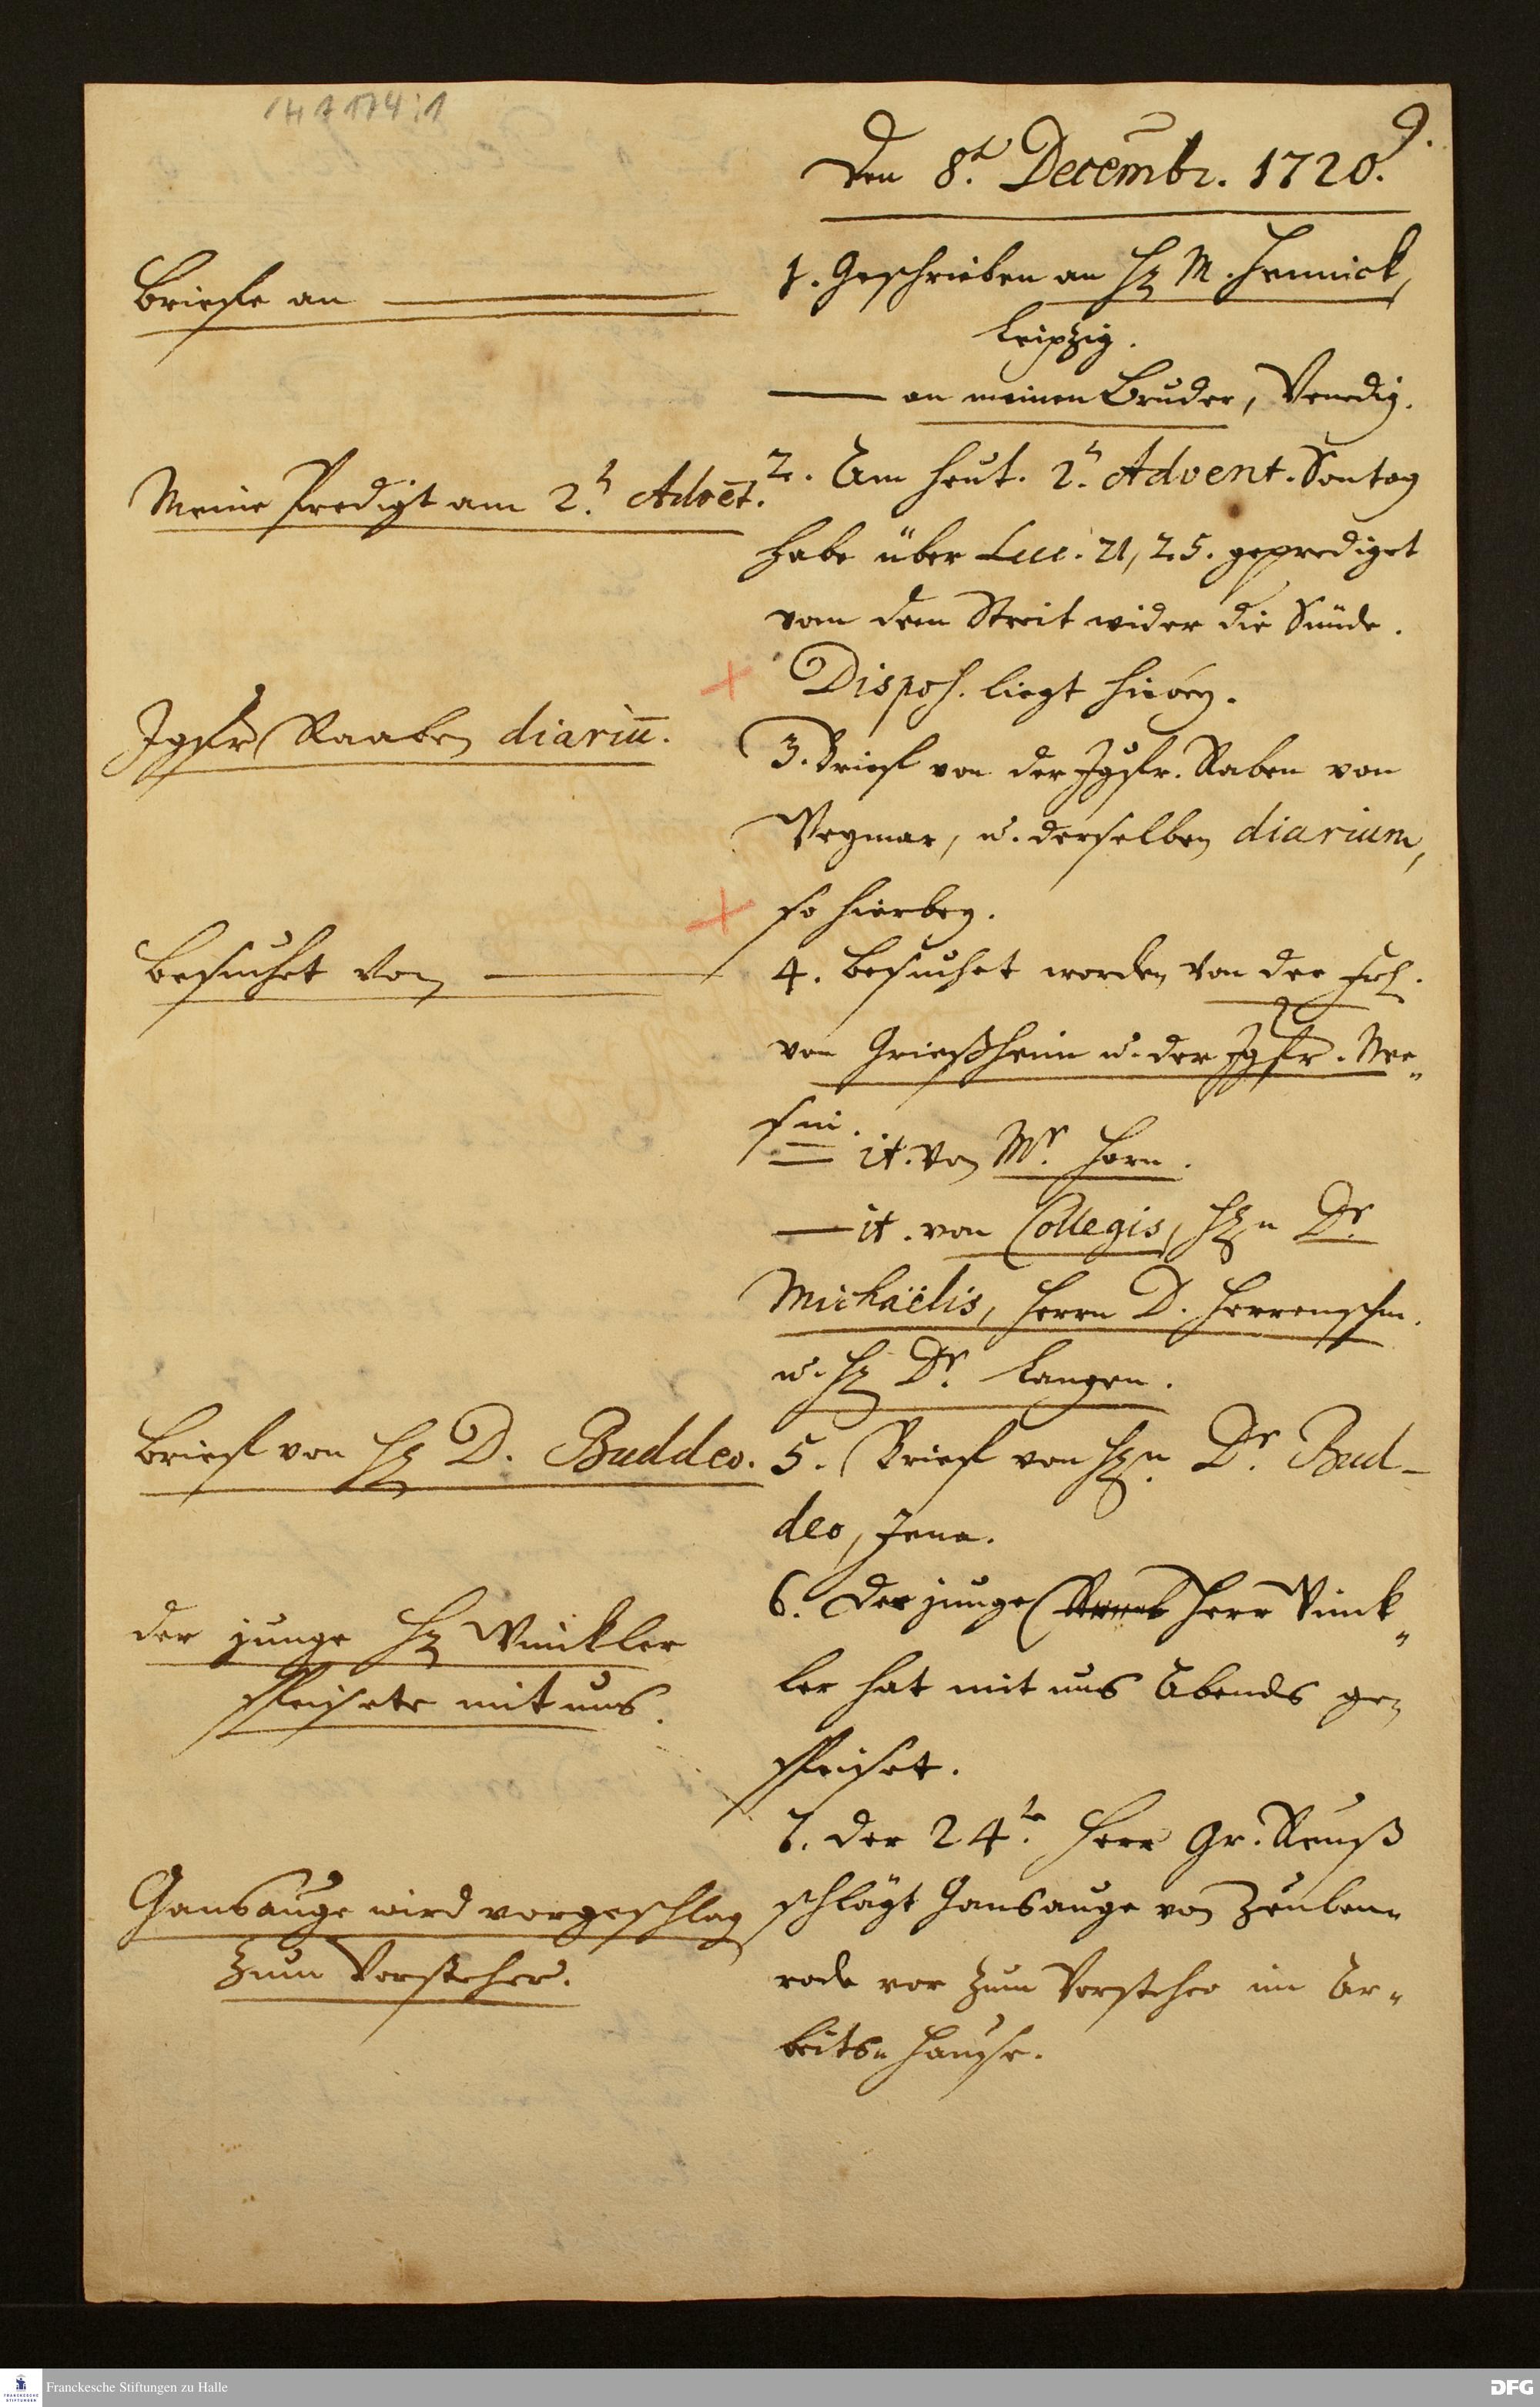 9.
Den 8.t Decembr. 1720.
Briefe an
1. Geschrieben an H. M. Hennick,
Leipzig.
an meinen Bruder, Venedig.
Meine Predigt am 2.t Advēt.
2. Am heut. 2.t Advent. Sontag
habe über Luc. 21, 25. geprediget
von dem Streit wider die Sünde.
Dispos. liegt hiebey.
Jgfr Raaben diariū.
3. Brief von der Jgfr. Raben von
Weymar, u. derselben diarium,
so hierbey.
Besuchet von
4. Besuchet worden von der Frl.
von Grießheim u. der Jgfr.
it. von Mr. Horn.
it. von Collegis, H.n Dr.
Michaëlis, Herrn D. Herrenschm.
u. H. Dr. Langen.
Brief von H. D. Buddeo.
5. Brief von H.n Dr. Bud-
deo, Jena.
der junge H. Winkler
speisete mit uns.
6. Der junge Herr Winck-
ler hat mit uns Abends ge-
speiset.
Gansauge wird vorgeschlag
zum Vorsteher.
7. der 24te Herr Gr. Reuß
schlägt Gansauge von Zeulen-
roda vor zum Vorsteher im Ar-
beits-Hause.
Franckesche Stiftungen zu Halle
DFG